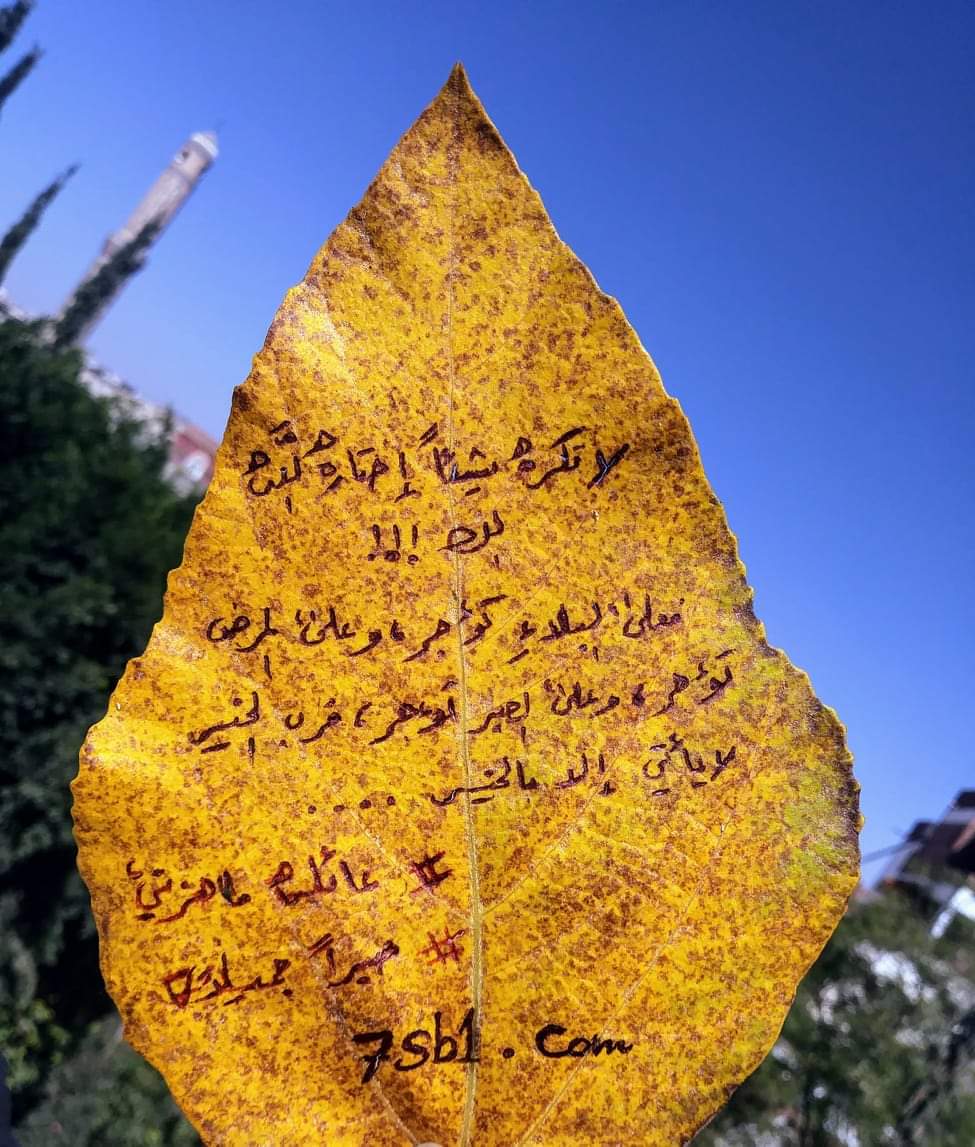 لا تكره شيئاً إختاره اللَّه
لك !!!
فعلىٰ البلاءِ تؤجر، وعلىٰ المرض
تؤجر، وعلىٰ الصبر تؤجر، فرب الخير
لا يأتي إلا بالخير ....
# عائلة
# صبراً جميلاً
7sb1.com